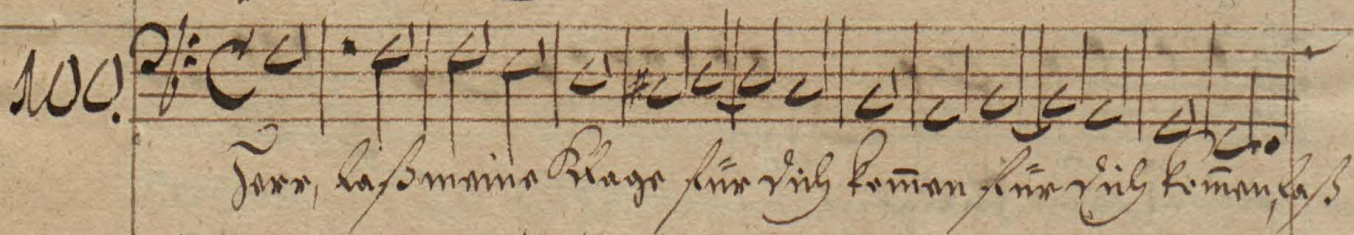 100.
Herr, laß meine Klage für dich kom̄en für dich kom̄en, laß